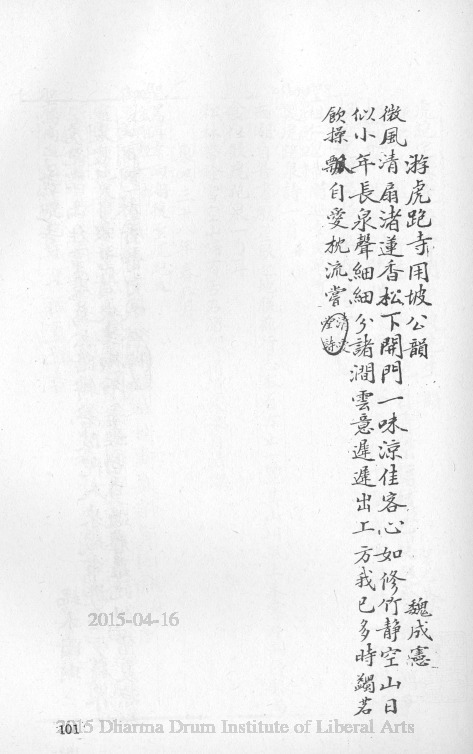 游虎跑寺用坡公韻 魏成憲
微風清扇渚蓮香松下開門一味涼佳客心如修竹靜空山日
似小年長泉聲細細分諸澗雲意遲遲出上方我已多時蠲茗
飲操瓢自愛枕流嘗 清愛堂詩
2015-04-16
101
2015 Dharma Drum Institute of Liberal Arts